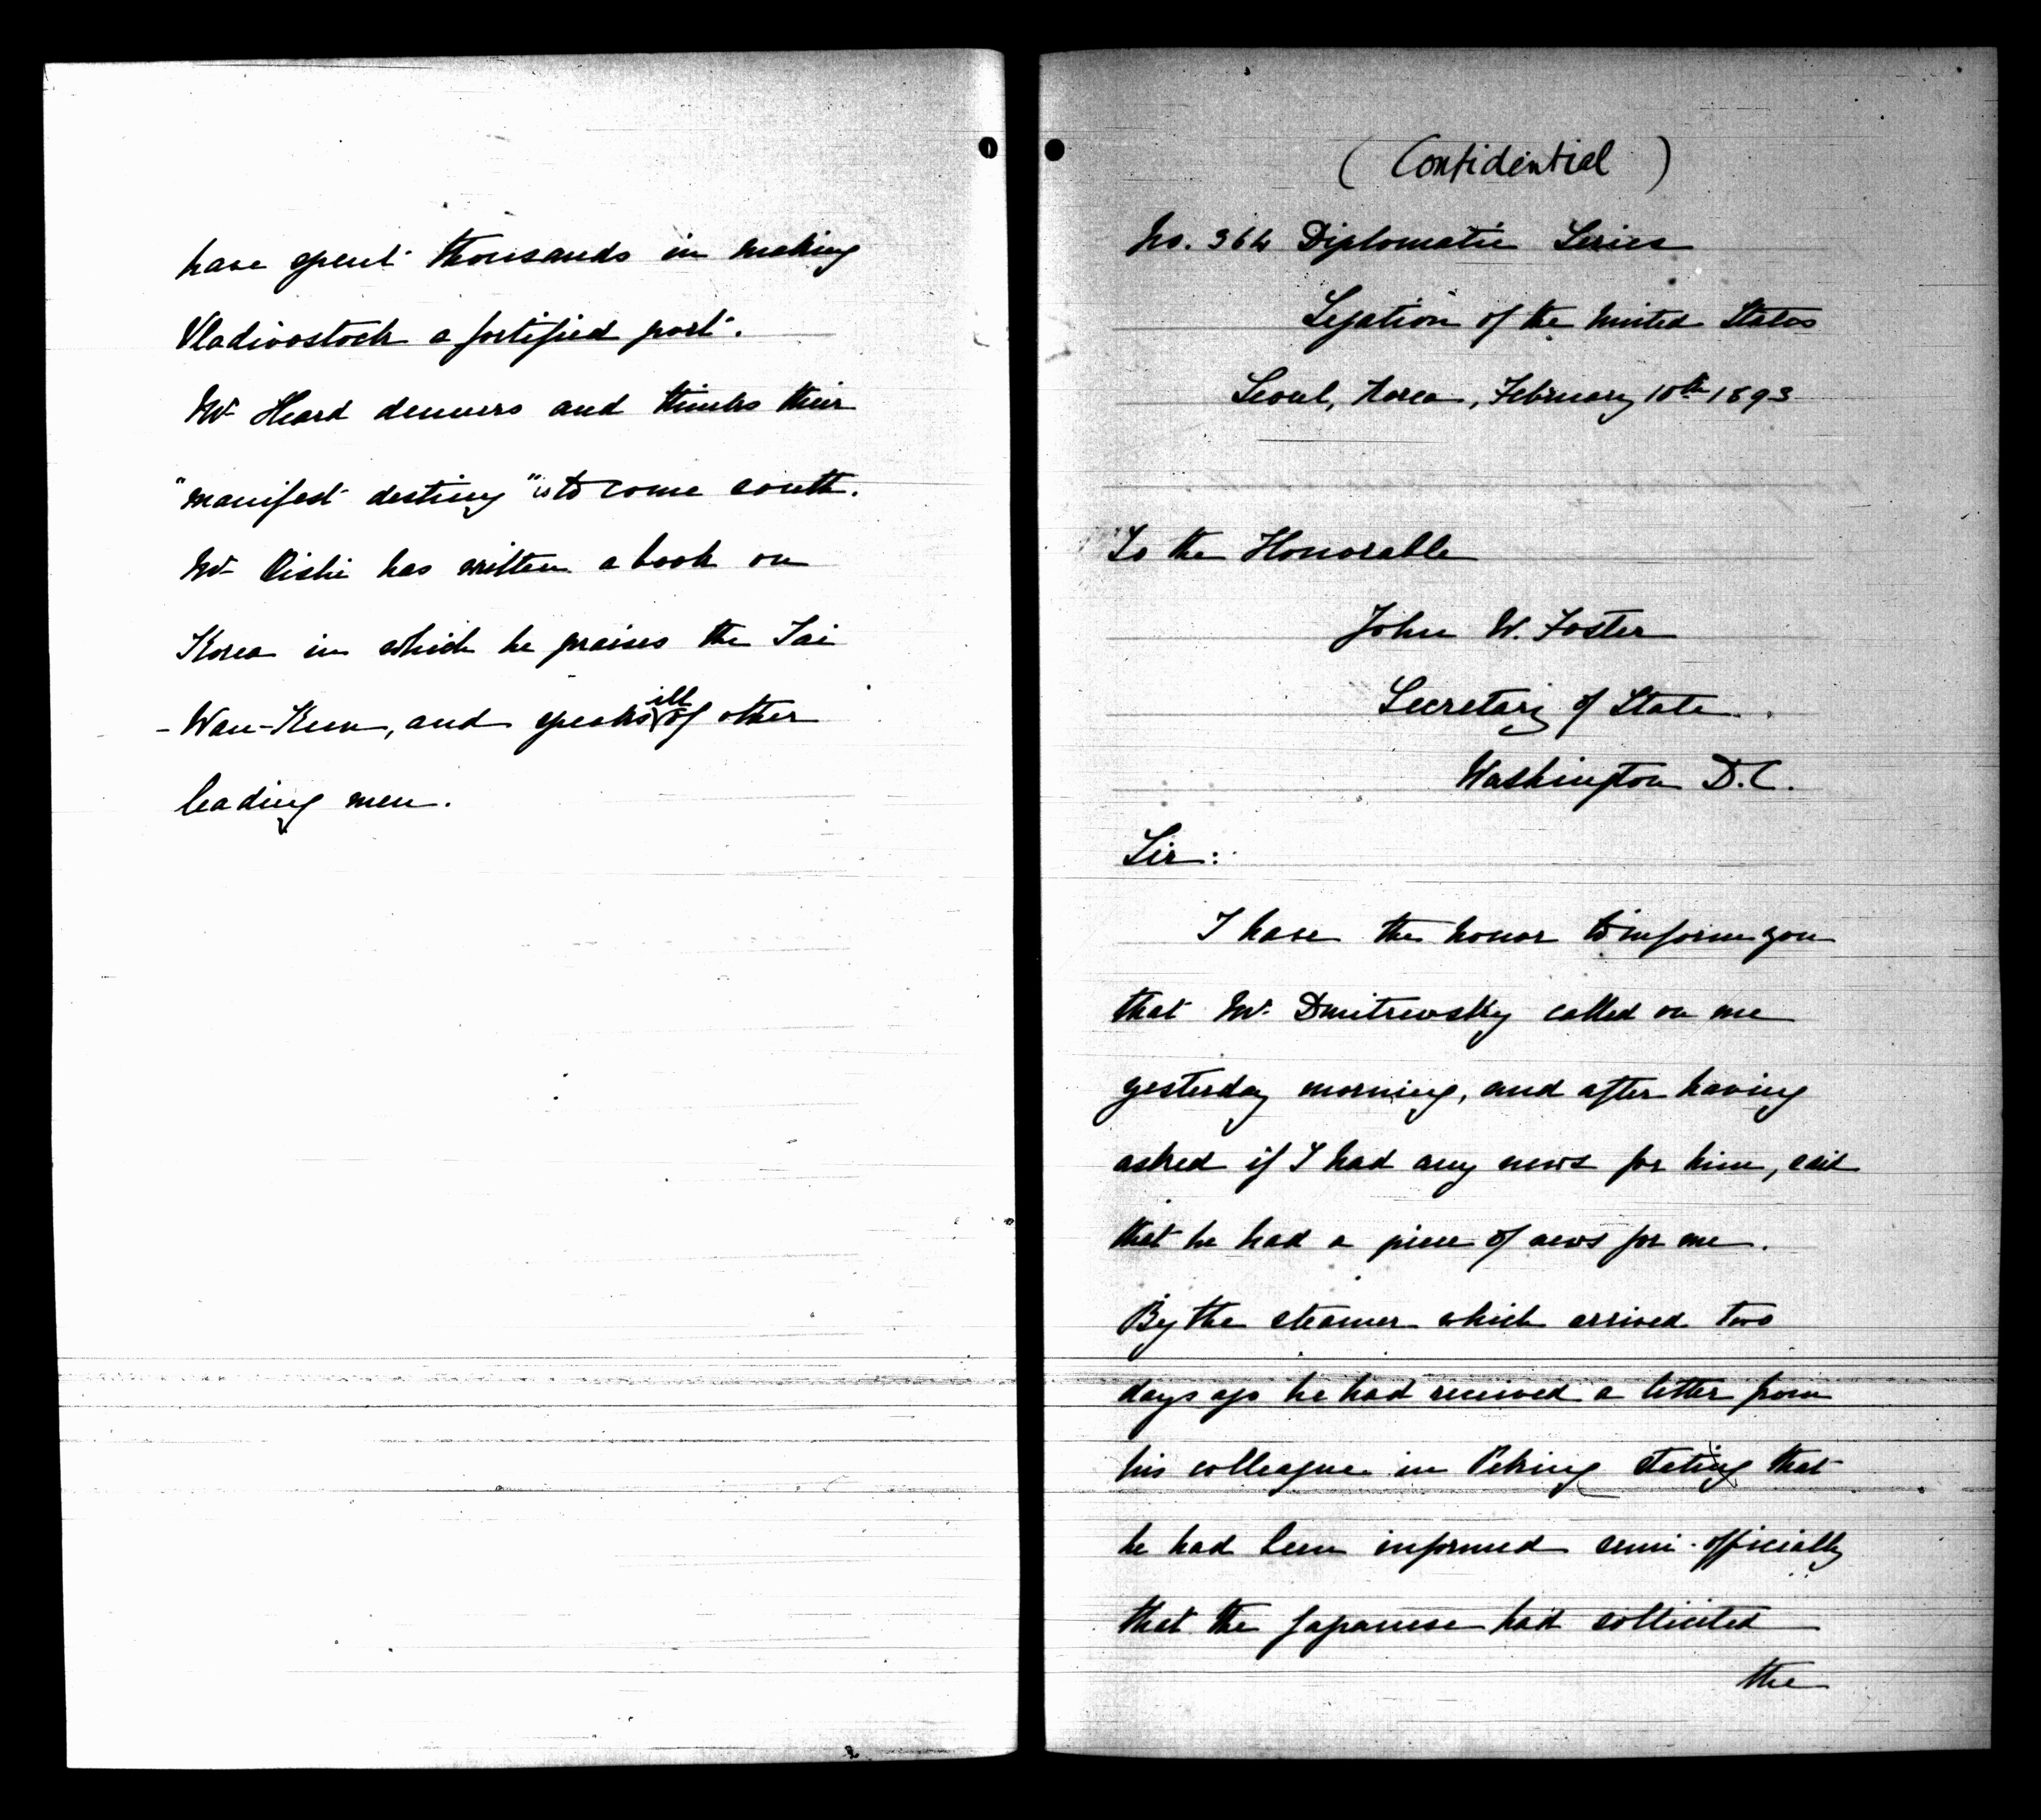 have spent thousands in making
Vladivostock a fortified port.
Mr Heard demurs and thinks their
"manifest destiny" is to come south.
Mr Oishi has written a book on
Korea in which he praises the Tai
-Wan-Kun, and speaks ill of other
leading men.
(Confidential)
No. 364 Diplomatic Series
Legation of the United States
Seoul, Korea, February 10th 1893
To the Honorable
John W. Foster
Secretary of State.
Washington D.C.
Sir:
I have the honor to inform you
that Mr. Dmitrevsky called on me
yesterday morning, and after having
asked if I had any news for him, said
that he had a piece of news for me.
By the steamer which arrived two
days ago he had received a letter from
his colleague in Peking stating that
he had been informed semi-officially
that the Japanese had sollicited
the